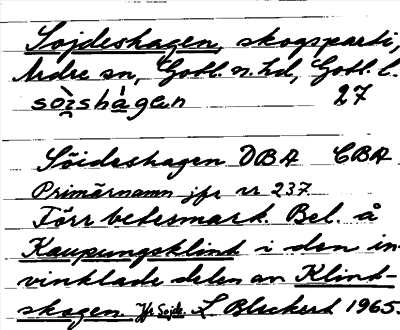 Sojdeshagen, skogsparti,
Ardre sn, Gotl. n. hd, Gotl. l.
sòi̯shàgen 27
Söideshagen DBA CBA
Primärnamn jfr nr 237
Förr betesmark. Bel. å
Kaupungsklint i den in-
vinklade delen av Klint-
skogen. Jfr Sojde. L Blackert 1965.